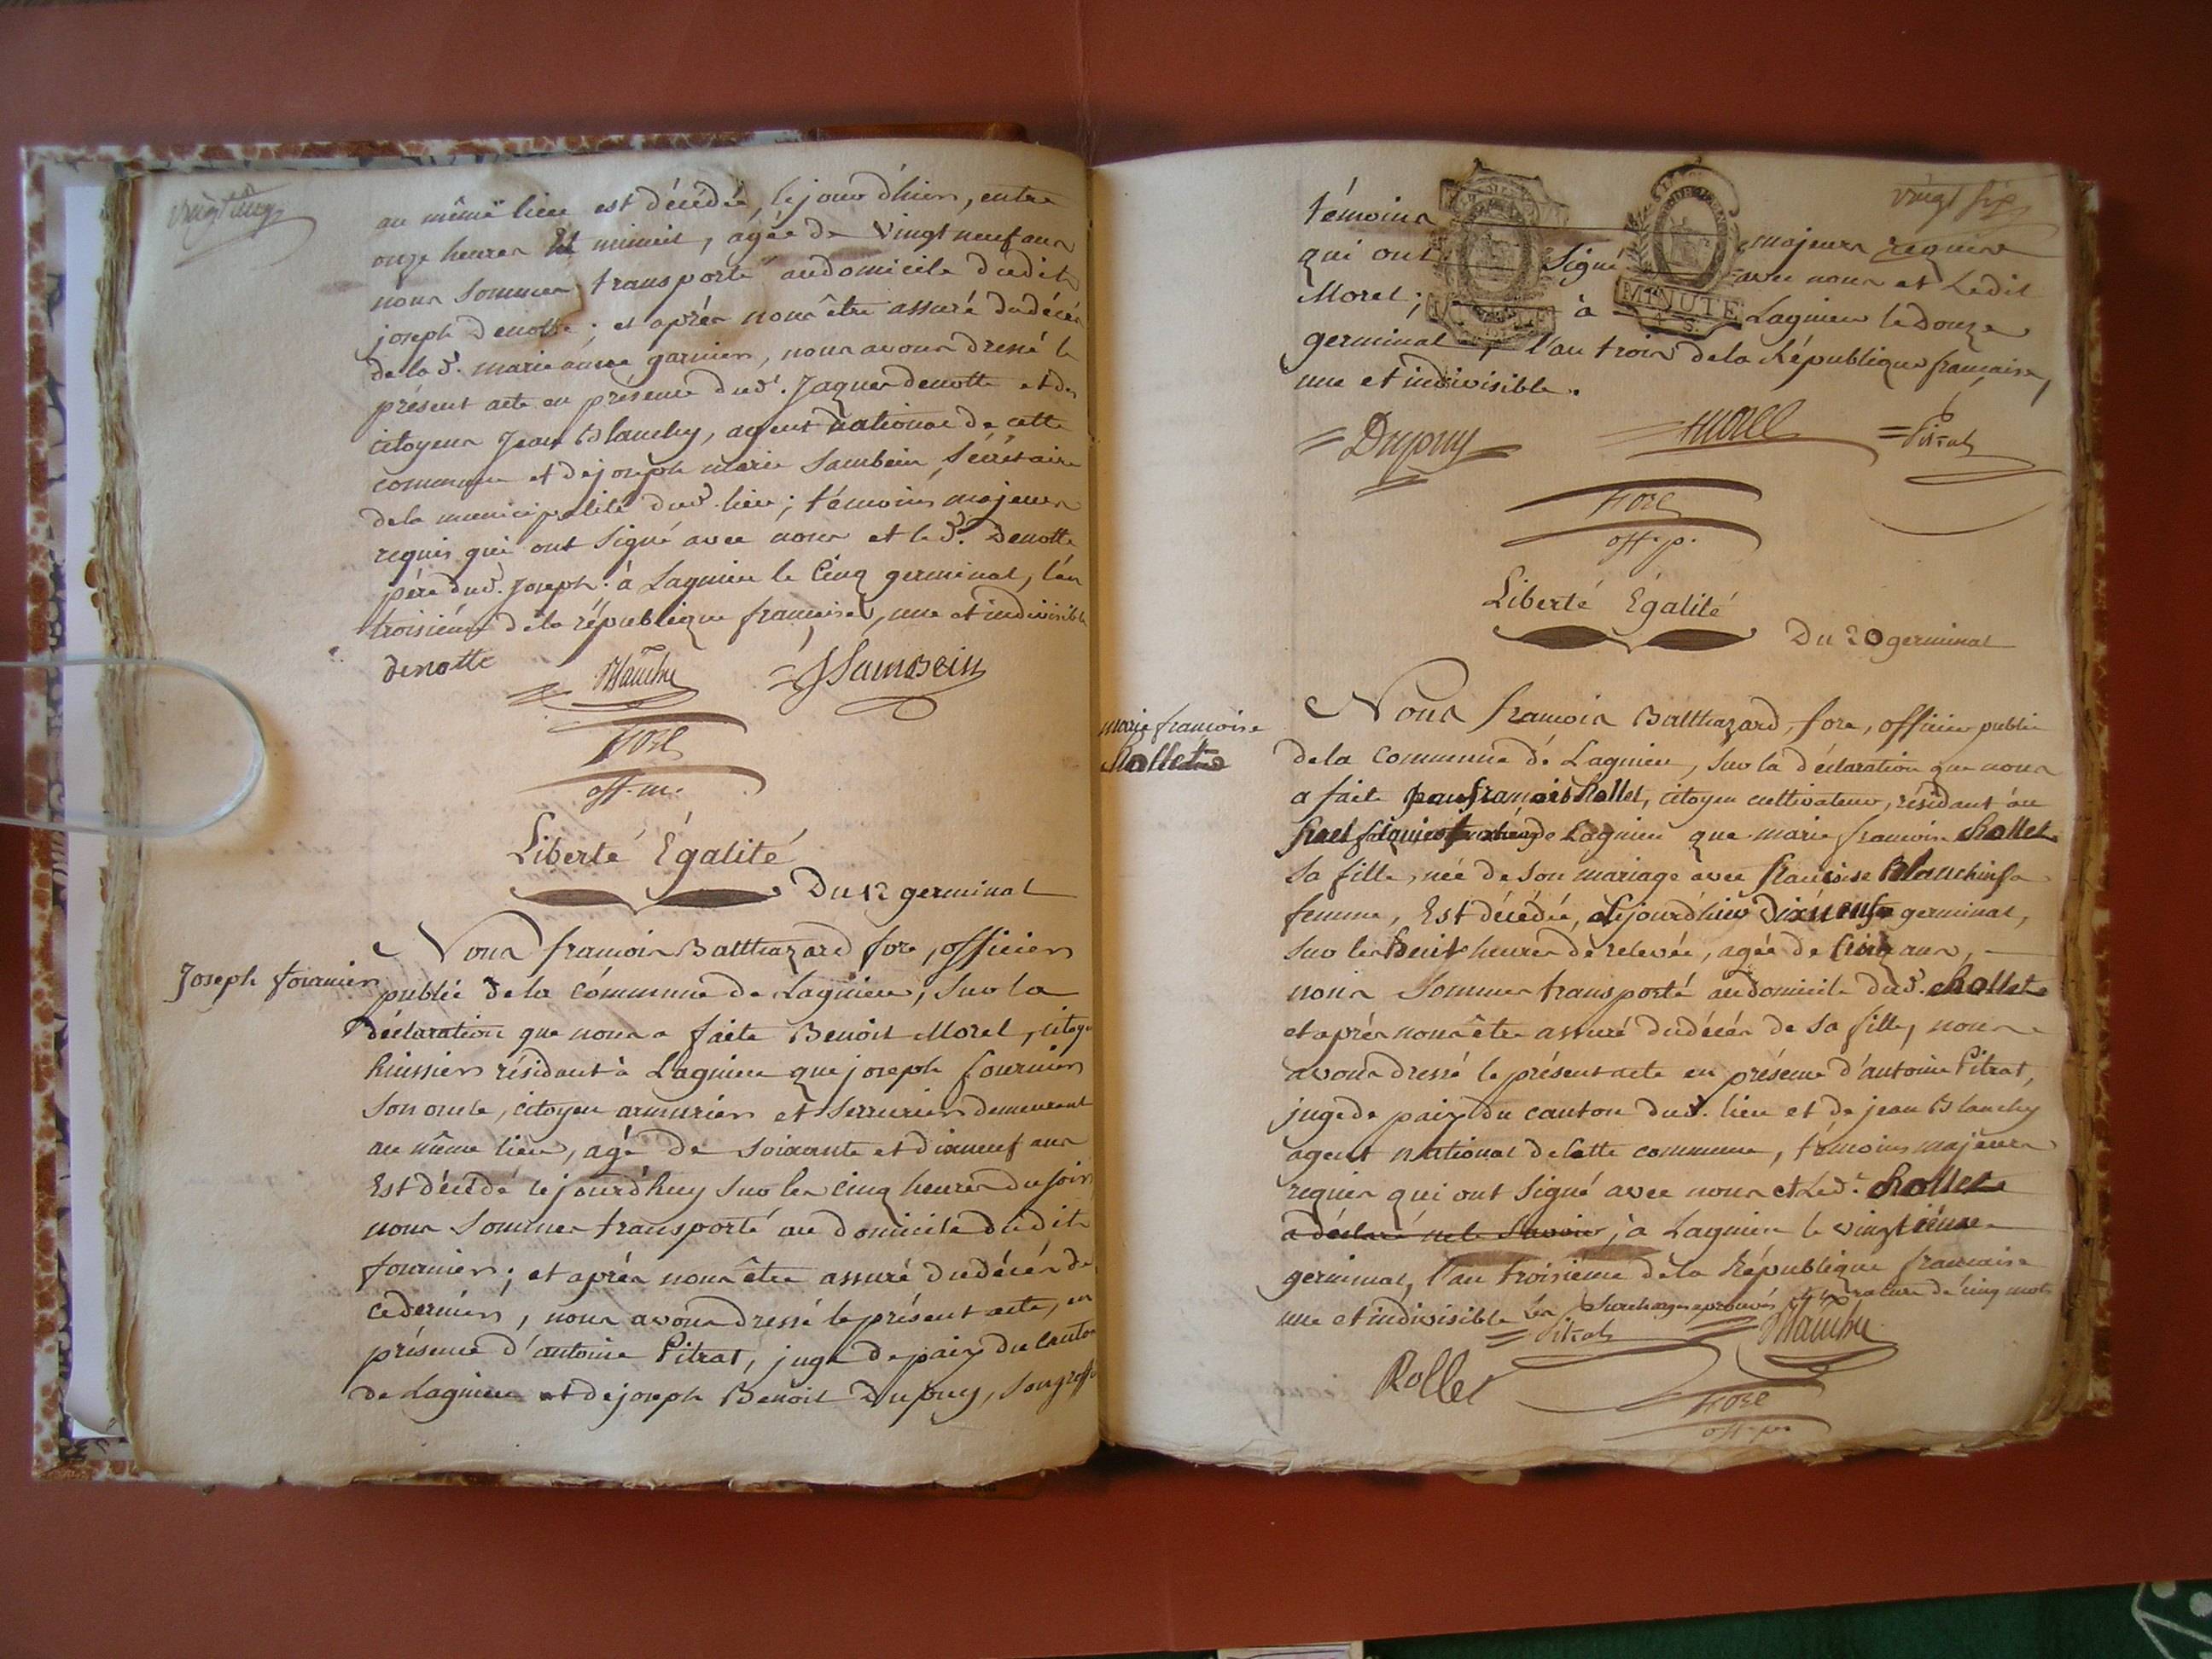 vingt cinq
au même lieu est décédée, le jour d'hier, entre
onze heures et minuit, agée de vingt neuf ans
nous sommes transporté au domicile dudit
joseph denotte; et après nous être assuré du décés
de la d. marie garnier, nous avons dressé le
présent acte en présence dud. Jaques denotte et des
citoyens Jean Blanchy, agent national de cette
commune et de joseph marie Sambein, Sécrétaire
de la municipalité dud. lieu; témoins majeurs
requis qui ont signé avec nous et le d. Denotte
père dud. Joseph. à Lagnieu le cinq germinal, l'an
troisième de la république francaise, une et indivisible
denotte Blanchy JSambein
fore
off. m.
Liberté Égalité
Du 12 germinal
Joseph fournier
Nous francois Balthazard fore, officier
public de la commune de Lagnieu, sur la
déclaration que nous a faite Benoit Morel, citoyen
huissier résidant à Lagnieu que joseph fournier
son oncle, citoyen armurier et serrurier demeurant
au même lieu, agé de soixante et dixneuf ans
Est décédé cejourd'huy sur les cinq heures du soir,
nous sommes transporté au domicile dudit
fournier; et après nous être assuré du décés de
ce dernier, nous avons dressé le présent acte, en
présence d'antoine Pitrat, juge de paix du canton
de Lagnieu et de joseph Benoit Dupuy, son greffier
vingt six
témoins majeurs requis
qui ont signé avec nous et Ledit
Morel; à Lagnieu le douze
MINUTE
germinal, l'an trois de la République francaise,
une et indivisible.
Dupuy morel Pitrat
fore
off. p.
Liberté Égalité
Du 20 germinal
marie francoise
Rollet
Nous francois Balthazard fore, officier public
de la commune de Lagnieu, sur la déclaration que nous
a faite francois Rollet, citoyen cultivateur, résidant au
de Lagnieu que marie francoise Rollet
sa fille, née de son mariage avec francoise Blanchin sa
femme, Est décédée, le jour d'hier dixneuf germinal,
sur les huit heures de relevée, agée de cinq ans,
nous sommes transporté au domicile dud. Rollet
et après nous être assuré du décés de sa fille, nous
avons dressé le présent acte en présence d'antoine Pitrat,
juge de paix du canton dud. lieu et de jean Blanchy
agent national de cette commune, témoins majeurs
requis qui ont signé avec nous et Led. Rollet
a déclaré ne le savoir, à Lagnieu le vingtième
germinal, l'an troisième de la République francaise
une et indivisible Les surcharges aprouvés rature de cinq mots
Pitrat Blanchy
Rollet
fore
off. p.